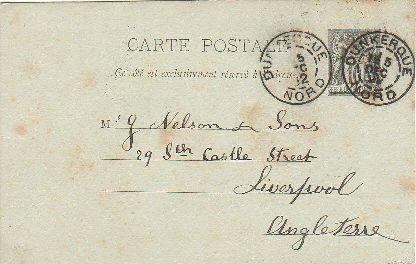 CARTE POSTALE
Ce côté est exclusivement réservé à l'adresse
DUNKERQUE
NORD
DUNKERQUE
NORD
M G Nelson & Sons
29 Sth Castle Street
Liverpool
Angleterre